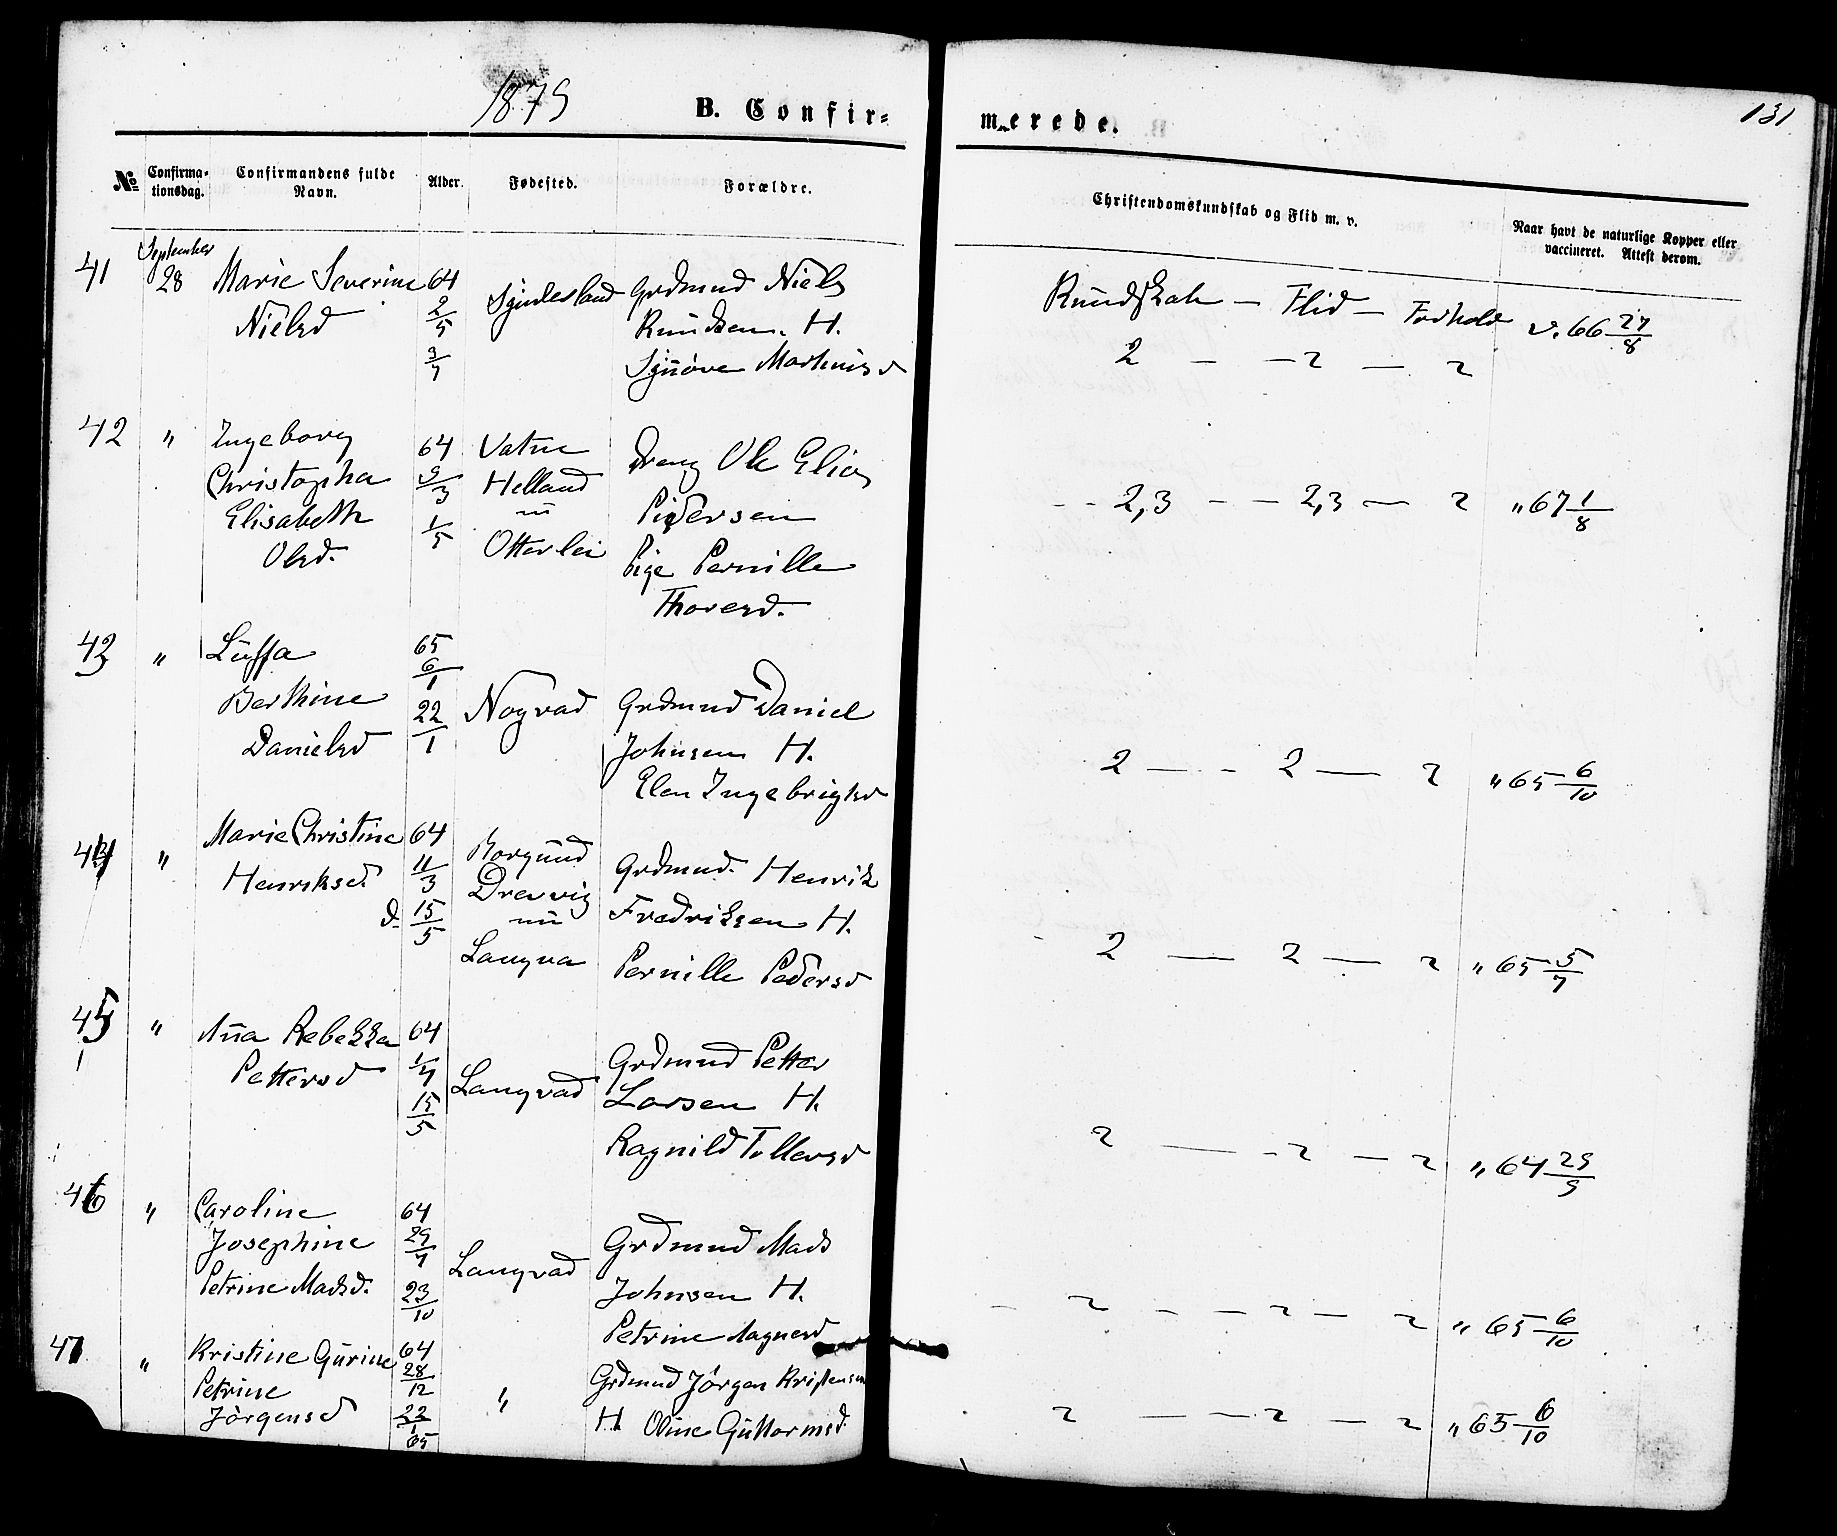 1879 B. Confir-
merede. 131
No Confirma-tionsdag. Confirmandens fulde Navn. Alder. Fødested. Forældre.
Christendomskundskab og Flid m. v. Naar havt de naturlige Kopper eller vaccineret. Attest derom.
41 September 28 Marie Severine 64 Synesland Grdmnd Niels
Nielsd 2/5 Knudsen. H.
3/7 Synøve Mathiasd
Kundskab — Flid — Forhold v. 66 27/8
2 — — 2 — 2
42 " Ingeborg 64 Vatne Dreng Ole Elias
Christopha 9/3 Helland Pedersen
Elisabeth 1/5 nu
Olsd. Otterlei Pige Pernille
Thoresd.
- - 2,3 - - 2,3 — 2 " 67 1/8
43 " Luffa 65
6/1
Berthine 22/1 Nogvad Grdmnd Daniel
Danielsd Johnsen H.
Elen Ingebrigtsd
2 — - 2 — 2 " 65 6/10
44 " Marie Christine 64 Borgund
Henriksd. 11/3 Drevvig Grdmnd. Henrik
d. 15/5 nu Fredriksen H.
Langva Pernille Pedersd
- 2 — 2 — 2 " 65 5/7
45 " Ana Rebekka 64
Pettersd 1/4 Langvad Grdmnd Petter
15/5 Larsen H.
Ragnild Tollevsd
2 — - 2 — 2 " 64 29/9
46 " Caroline 64
Josephine 29/7 Langvad Grdmnd Mads
Petrine Madsd. 23/10 Johnsen H.
Petrine Magnesd
- 2 - - 2 — 2 " 65 6/10
47 " Kristine Gurine 64
Petrine 28/12 " Grdmnd Jörgen Kristensen
Jörgensd 22/1 65 H. Oline Guttormsd.
2 — - 2 — 2 " 65 6/10